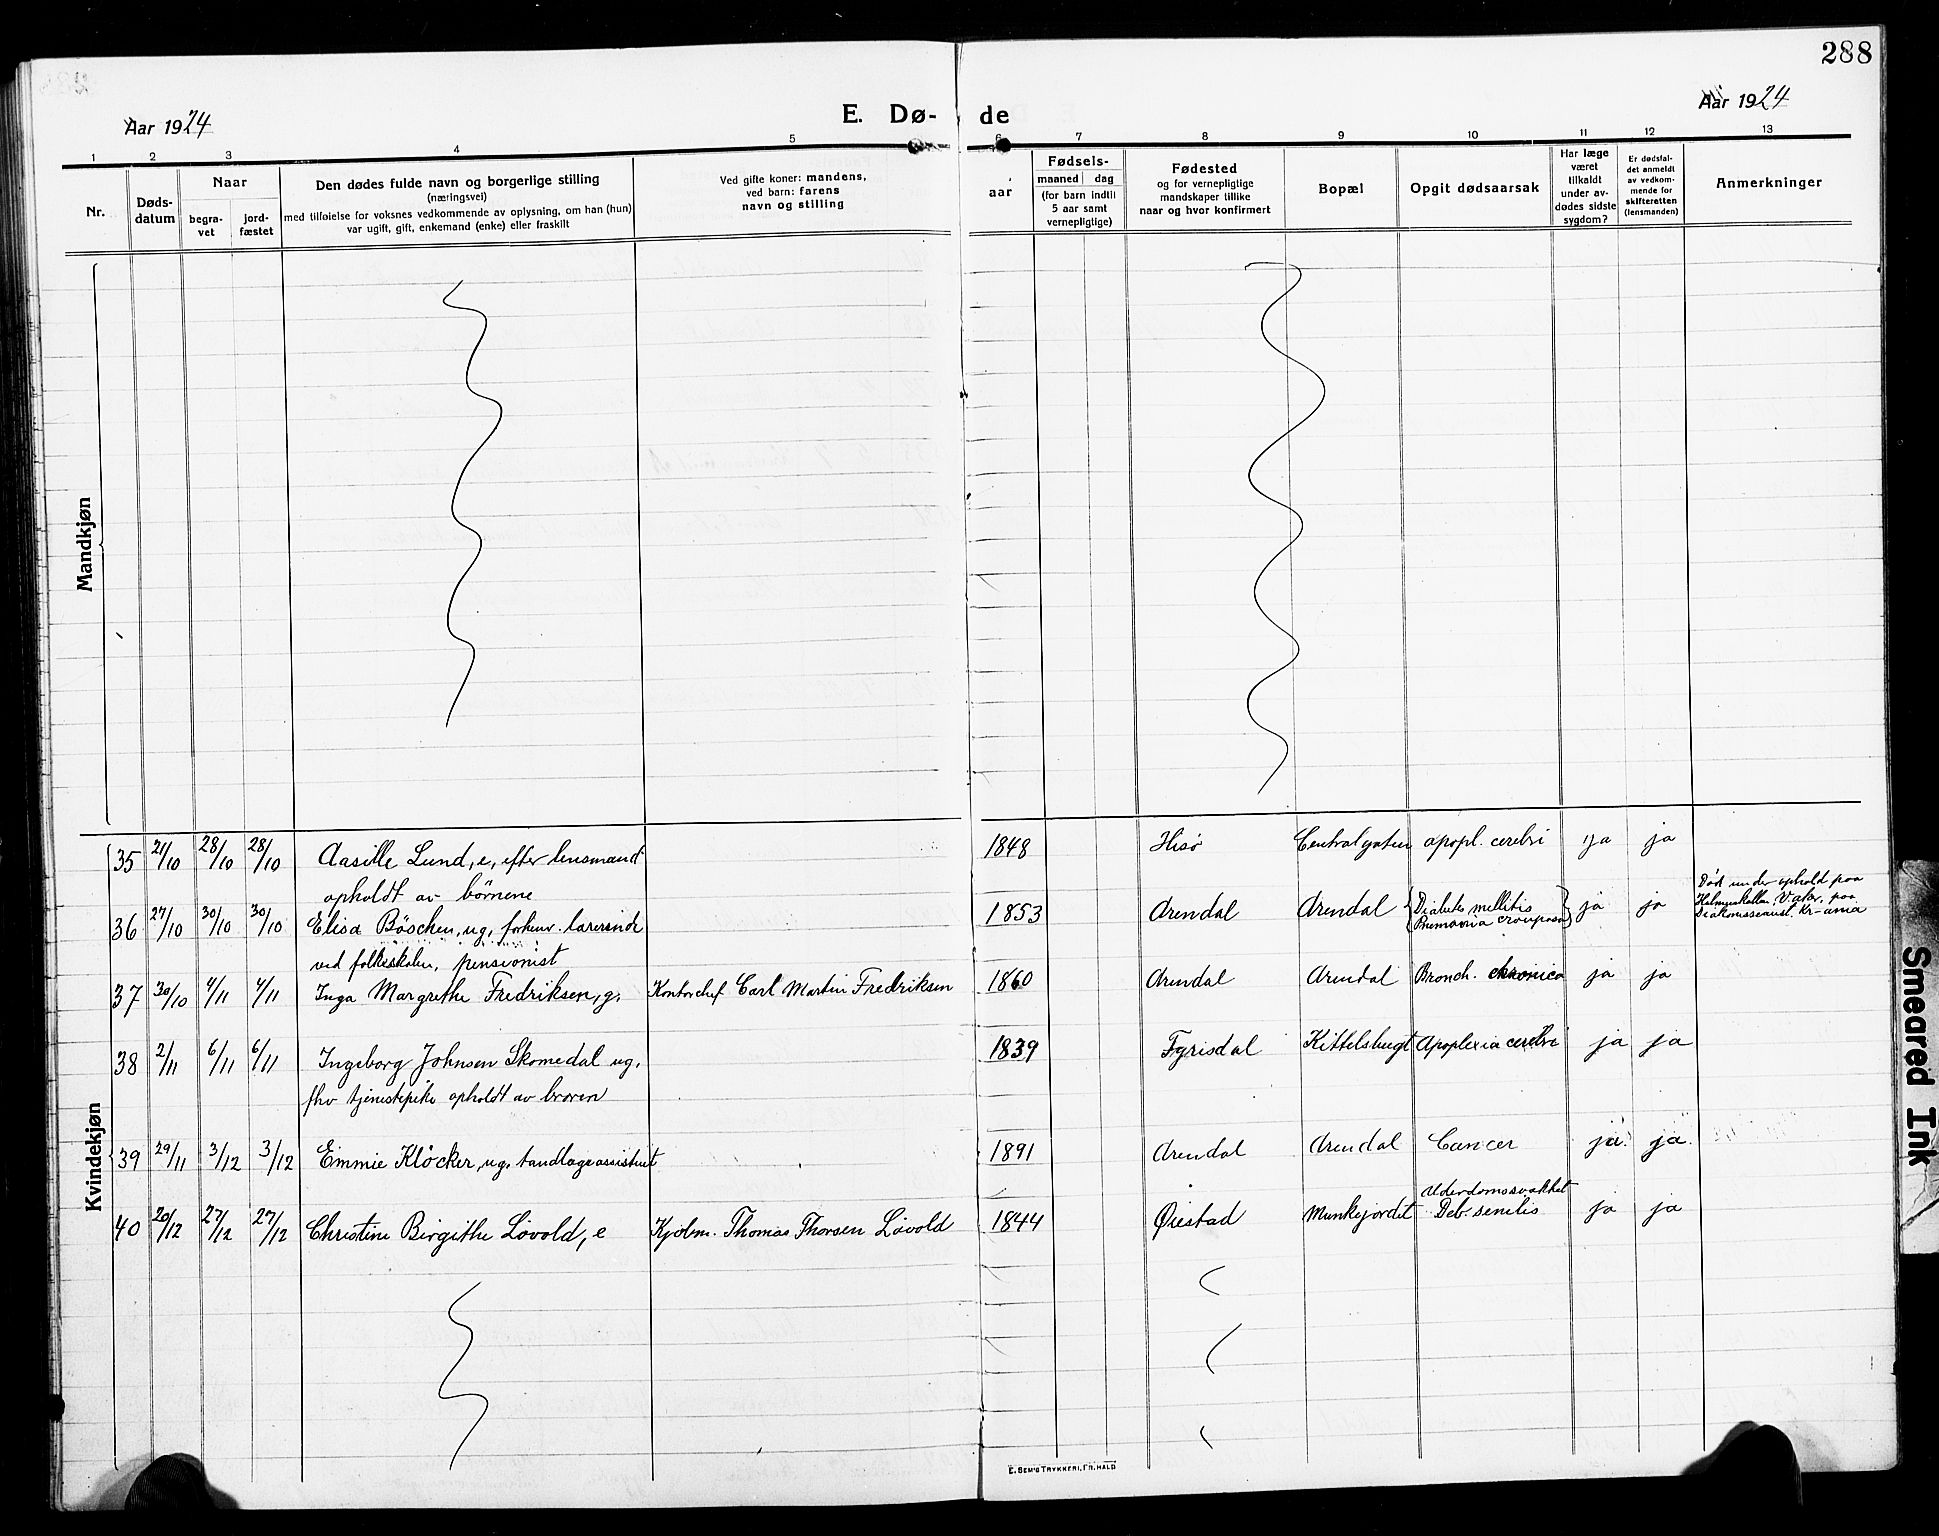 288
Aar 1924
E. Dø- de
Aar 1924
1 2 3 4 5 6 7 8 9 10 11 12 13
Nr.
Døds-
datum
Naar
begra-
vet
jord-
fæstet
Den dødes fulde navn og borgerlige stilling
(næringsvei)
med tilføielse for voksnes vedkommende av oplysning, om han (hun)
var ugift, gift, enkemand (enke) eller fraskilt
Ved gifte koner: mandens,
ved barn: farens
navn og stilling
Fødsels-
aar
maaned dag
(for barn indtil
5 aar samt
vernepligtige)
Fødested
og for vernepligtige
mandskaper tillike
naar og hvor konfirmert
Bopæl
Opgit dødsaarsak
Har læge
været
tilkaldt
under av-
dødes sidste
sygdom?
Er dødsfal-
det anmeldt
av vedkom-
mende for
skifteretten
(lensmanden)
Anmerkninger
Mandkjøn
Kvindekjøn
35 21/10 28/10 28/10 Aasille Lund, e, efter lensmand 1848 Hisø Centralgaten apopl. cerebri ja ja
opholdt av börnene
36 27/10 30/10 30/10 Elisa Böschen, ug, forhenv. lærerinde 1853 Arendal Arendal Diabetes mellitis ja ja Död under ophold paa
ved folkeskolen, pensionist
37 30/10 4/11 4/11 Inga Margrethe Fredriksen, g. Kontorchef Carl Martin Fredriksen 1860 Arendal Arendal Bronch. chronica ja ja
38 2/11 6/11 6/11 Ingeborg Johnsen Skomedal ug. 1839 Fyrisdal Kittelsbugt Apoplexia cerebri ja ja
fhv tjenestepike opholdt av broren
39 29/11 3/12 3/12 Emmie Klöcker, ug. tandlægeassistent 1891 Arendal Arendal Cancer ja ja
Alderdomssvakhet
40 20/12 27/12 27/12 Christine Birgithe Lövold, e Kjøbm. Thomas Thorsen Lövold 1844 Øiestad Munkejordet Deb. senilis ja ja
E. SEM'S TRYKKERI, FR.HALD
Smeared Ink